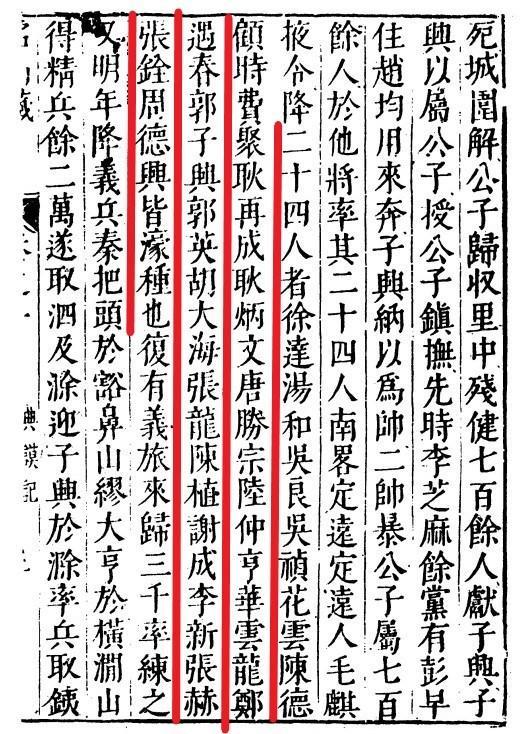 死城圍解公子歸収里中殘健七百餘人獻子興子
興以屬公子授公子鎮撫先時李芝麻餘黨有彭早
住趙均用來奔子興納以爲帥二帥暴公子屬七百
餘人於他將率其二十四人南畧定遠定遠人毛麒
掖令降二十四人者徐達湯和吳良吳禎花雲陳德
顧時費聚耿再成耿炳文唐勝宗陸仲亨華雲龍鄭
遇春郭子興郭英胡大海張龍陳植謝成李新張赫
張銓周德興皆濠種也復有義旅來歸三千率練之
又明年降義兵秦把頭於豁鼻山繆大亨於橫澗山
得精兵餘二萬遂取泗及滁迎子興於滁率兵取鉄
名山藏 典謨記